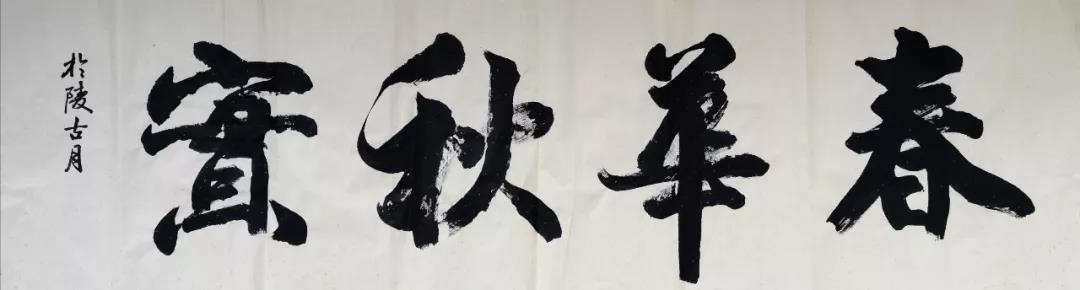 春華秋實
於陵古月